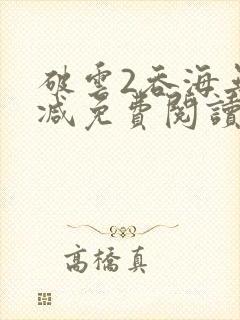 破雲2吞海無
減免費閱讀
高橋真